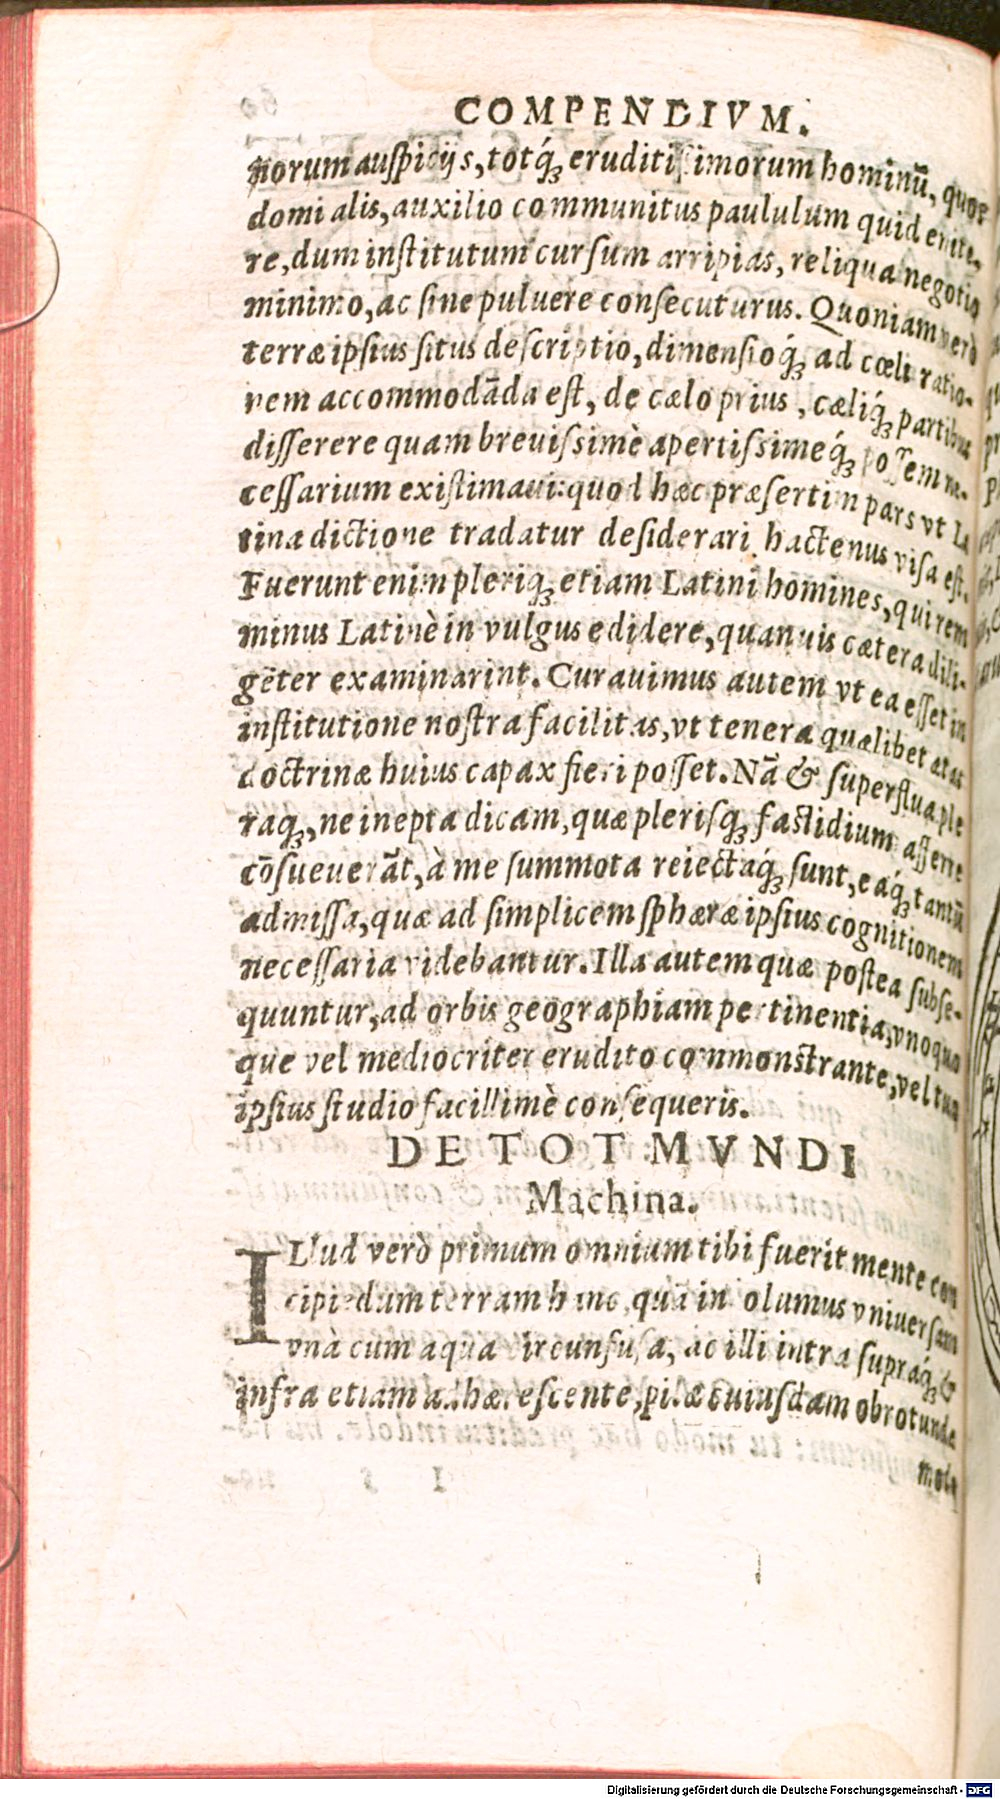 COMPENDIVM.
norum auſpicijs, totq́ꝫ eruditiſsimorum hominū, quos
domi alis, auxilio communitus paululum quid enite-
re, dum inſtitutum curſum arripias, reliqua negotio
minimo, ac ſine puluere conſecuturus. Quoniam verò
terræ ipſius ſitus deſcriptio, dimenſioq́ꝫ ad cœli ratio-
nem accommodāda eſt, de cælo prius, cæliq́ꝫ partibus
diſſerere quam breuiſsimè apertiſsimeq́ꝫ poſſem ne-
ceſſarium exiſtimaui: quod hæc præſertim pars vt La
tina dictione tradatur deſiderari hactenus viſa eſt.
Fuerunt enim pleriqꝫ etiam Latini homines, qui rem
minus Latinè in vulgus edidere, quamuis cætera dili-
gēter examinarint. Curauimus autem vt ea eſſet in
inſtitutione noſtra facilitas, vt tenera quælibet ætas
doctrinæ huius capax fieri poſſet. Nā & ſuperflua ple
raqꝫ, ne inepta dicam, quæ pleriſqꝫ faſtidium afferre
cōſueuerāt, à me ſummota reiectaq́ꝫ ſunt, eaq́ꝫ tantū
admiſſa, quæ ad ſimplicem ſphæræ ipſius cognitionem
neceſſaria videbantur. Illa autem quæ poſtea ſubſe-
quuntur, ad orbis geographiam pertinentia, vnoquo
que vel mediocriter erudito commonſtrante, vel tuo
ipſius ſtudio facillimè conſequeris.
DE TOT MVNDI
Machina.
ILlud verò primum omnium tibi fuerit mente con
cipiēdum terram hanc, quā in olumus vniuerſam
vnà cum aqua circunfuſa, ac illi intra ſupraq́ꝫ &
infra etiam adhæreſcente, pilæ cuiuſdam obrotundæ
modo
Digitalisierung gefördert durch die Deutsche Forschungsgemeinschaft - DFG